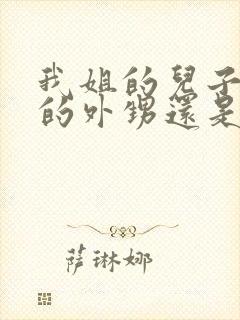 我姐的兒子
的外甥還是
萨琳娜